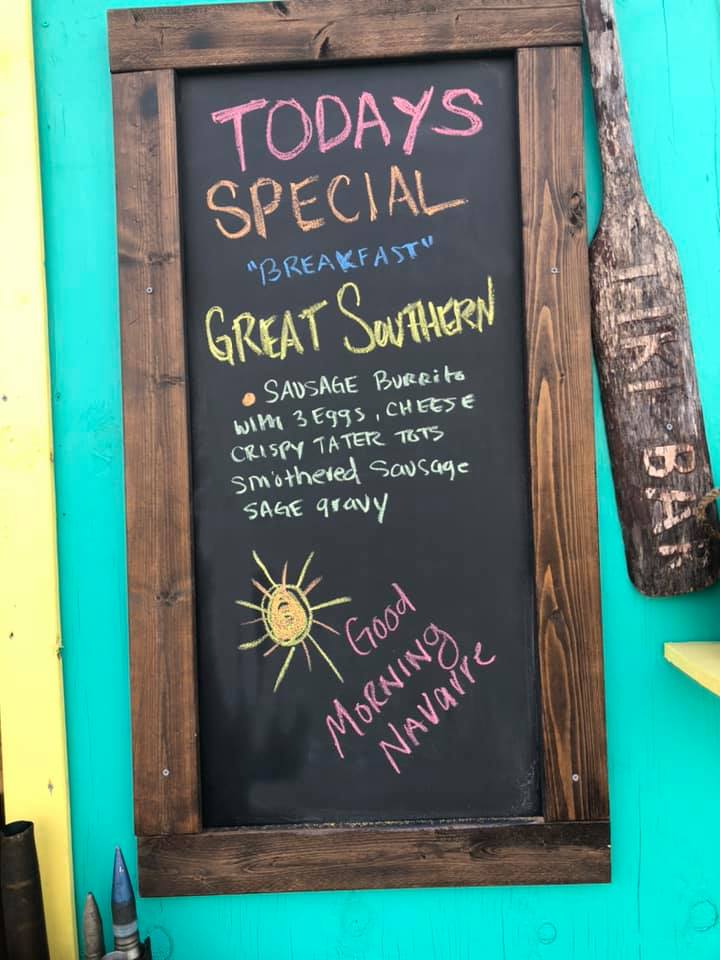 TODAYS
SPECIAL
"BREAKFAST"
GREAT SOUTHERN
• SAUSAGE BURRito
WITH 3 Eggs, CHEESE
CRISPY TATER TOTS
smothered Sausage
SAGE gravy
Good
MORNING
NAVarre
TIKI BAR